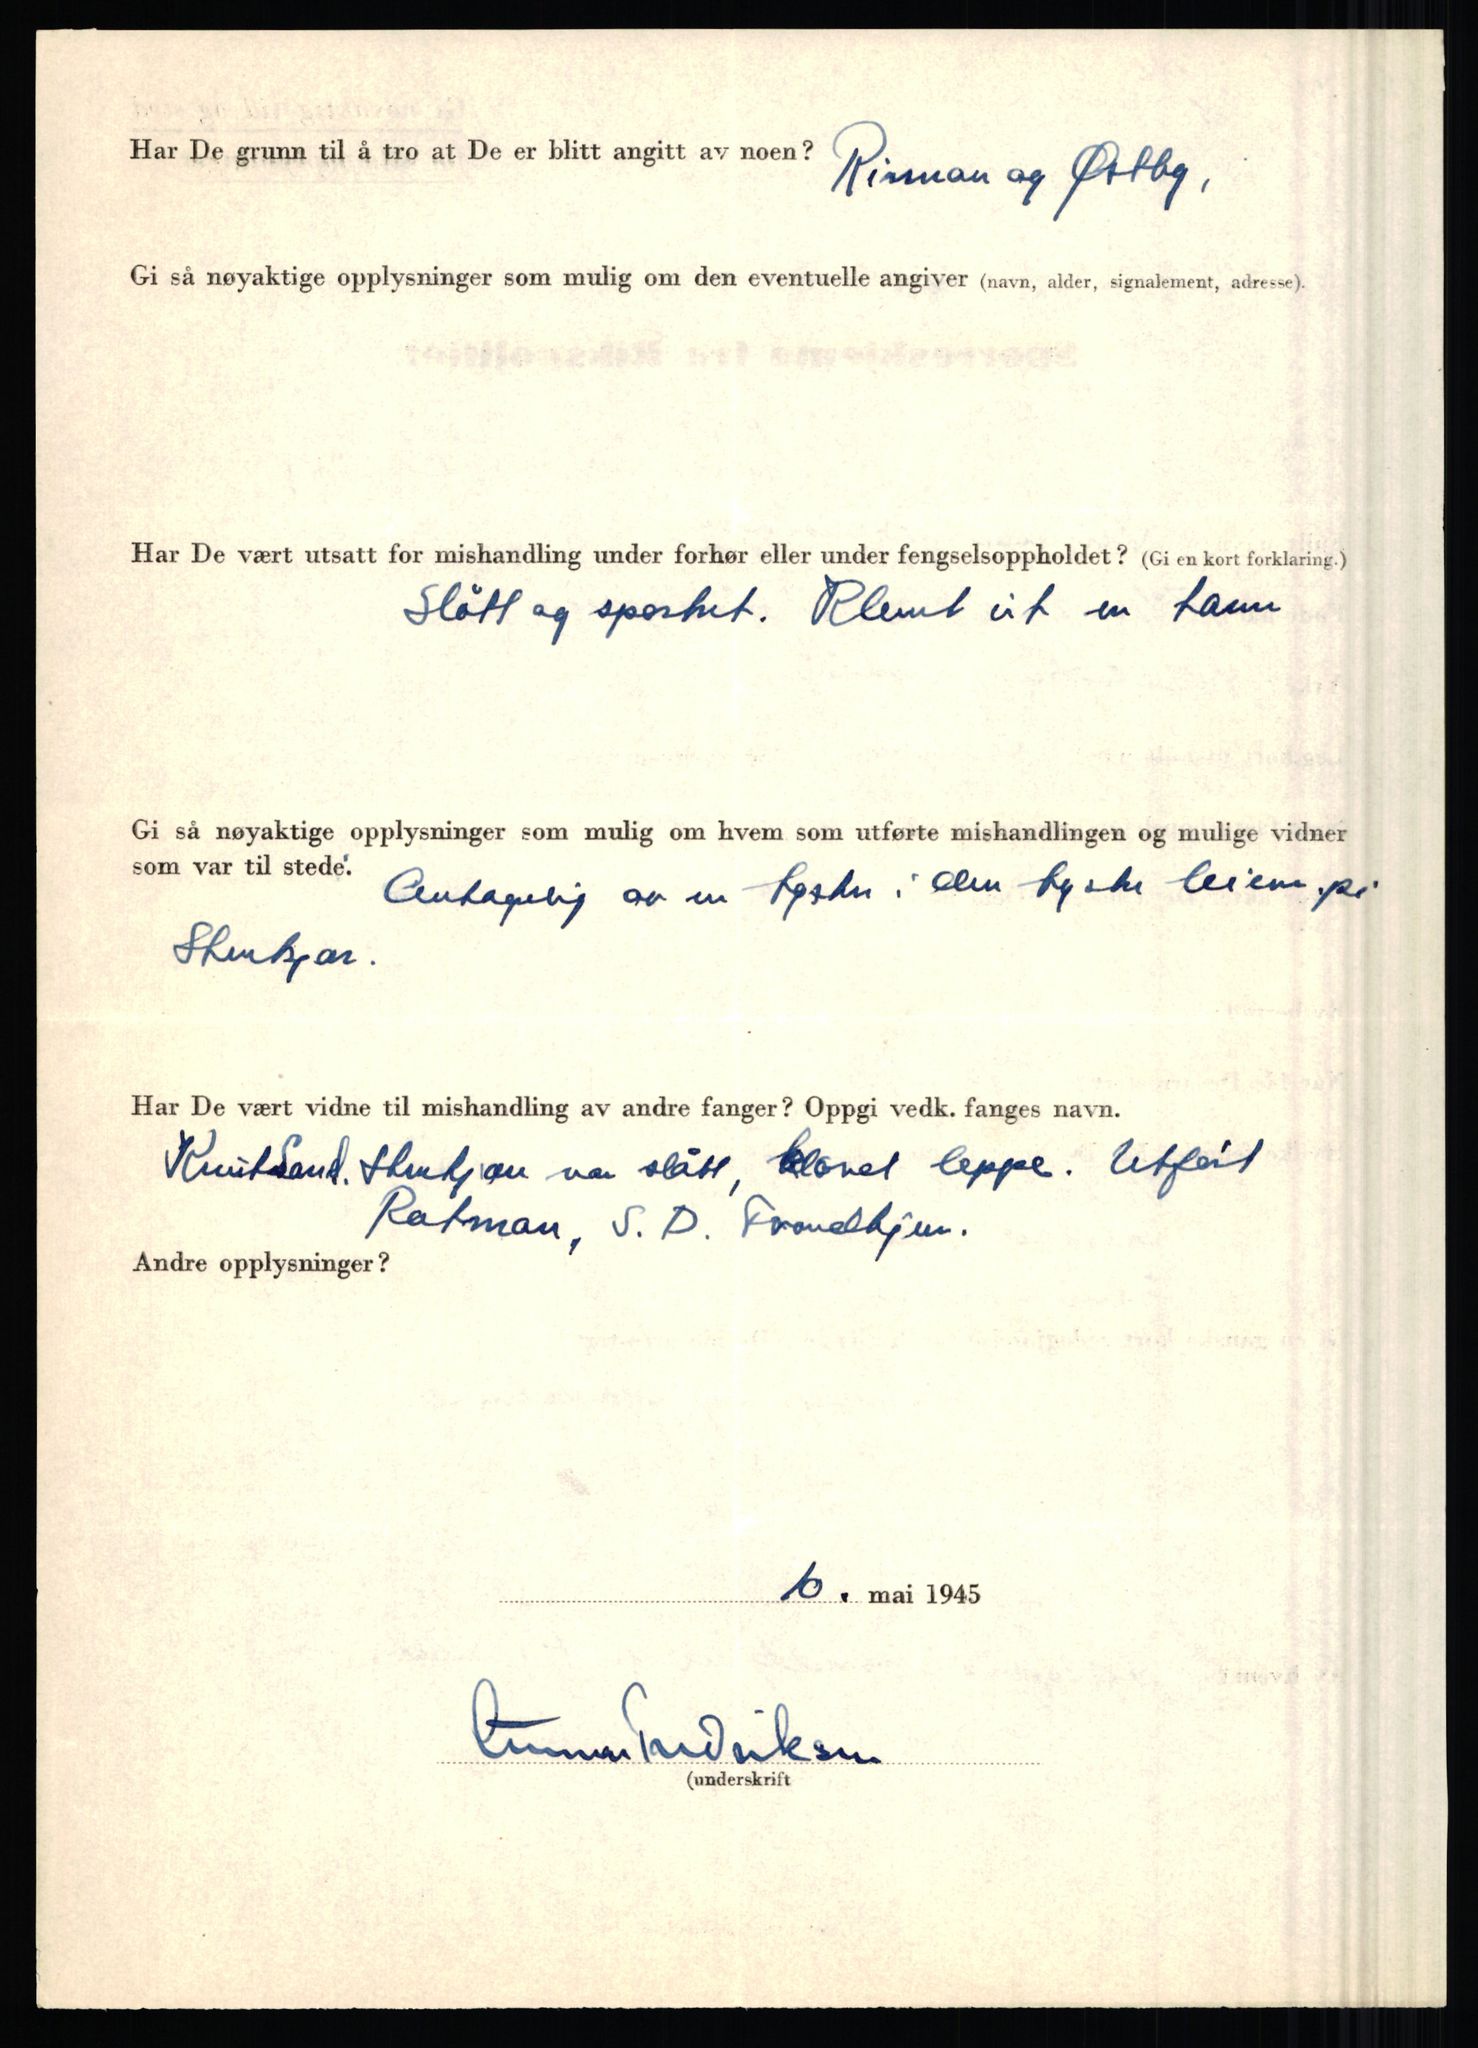 Har De grunn til å tro at De er blitt angitt av noen? Rinnan og Østby,
Gi så nøyaktige opplysninger som mulig om den eventuelle angiver (navn, alder, signalement, adresse).
Har De vært utsatt for mishandling under forhør eller under fengselsoppholdet? (Gi en kort forklaring.)
Slått og sparket. Klemt ut en tann
Gi så nøyaktige opplysninger som mulig om hvem som utførte mishandlingen og mulige vidner
som var til stede.
Antagelig av en tysker i den tyske leiren på
Stenkjær.
Har De vært vidne til mishandling av andre fanger? Oppgi vedk. fanges navn.
Knut Sand. Stenkjær var slått, kløvet leppe. Utført
Ratman, S. D. Trondhjem.
Andre opplysninger?
10. mai 1945
Gunnar Fredriksen
(underskrift